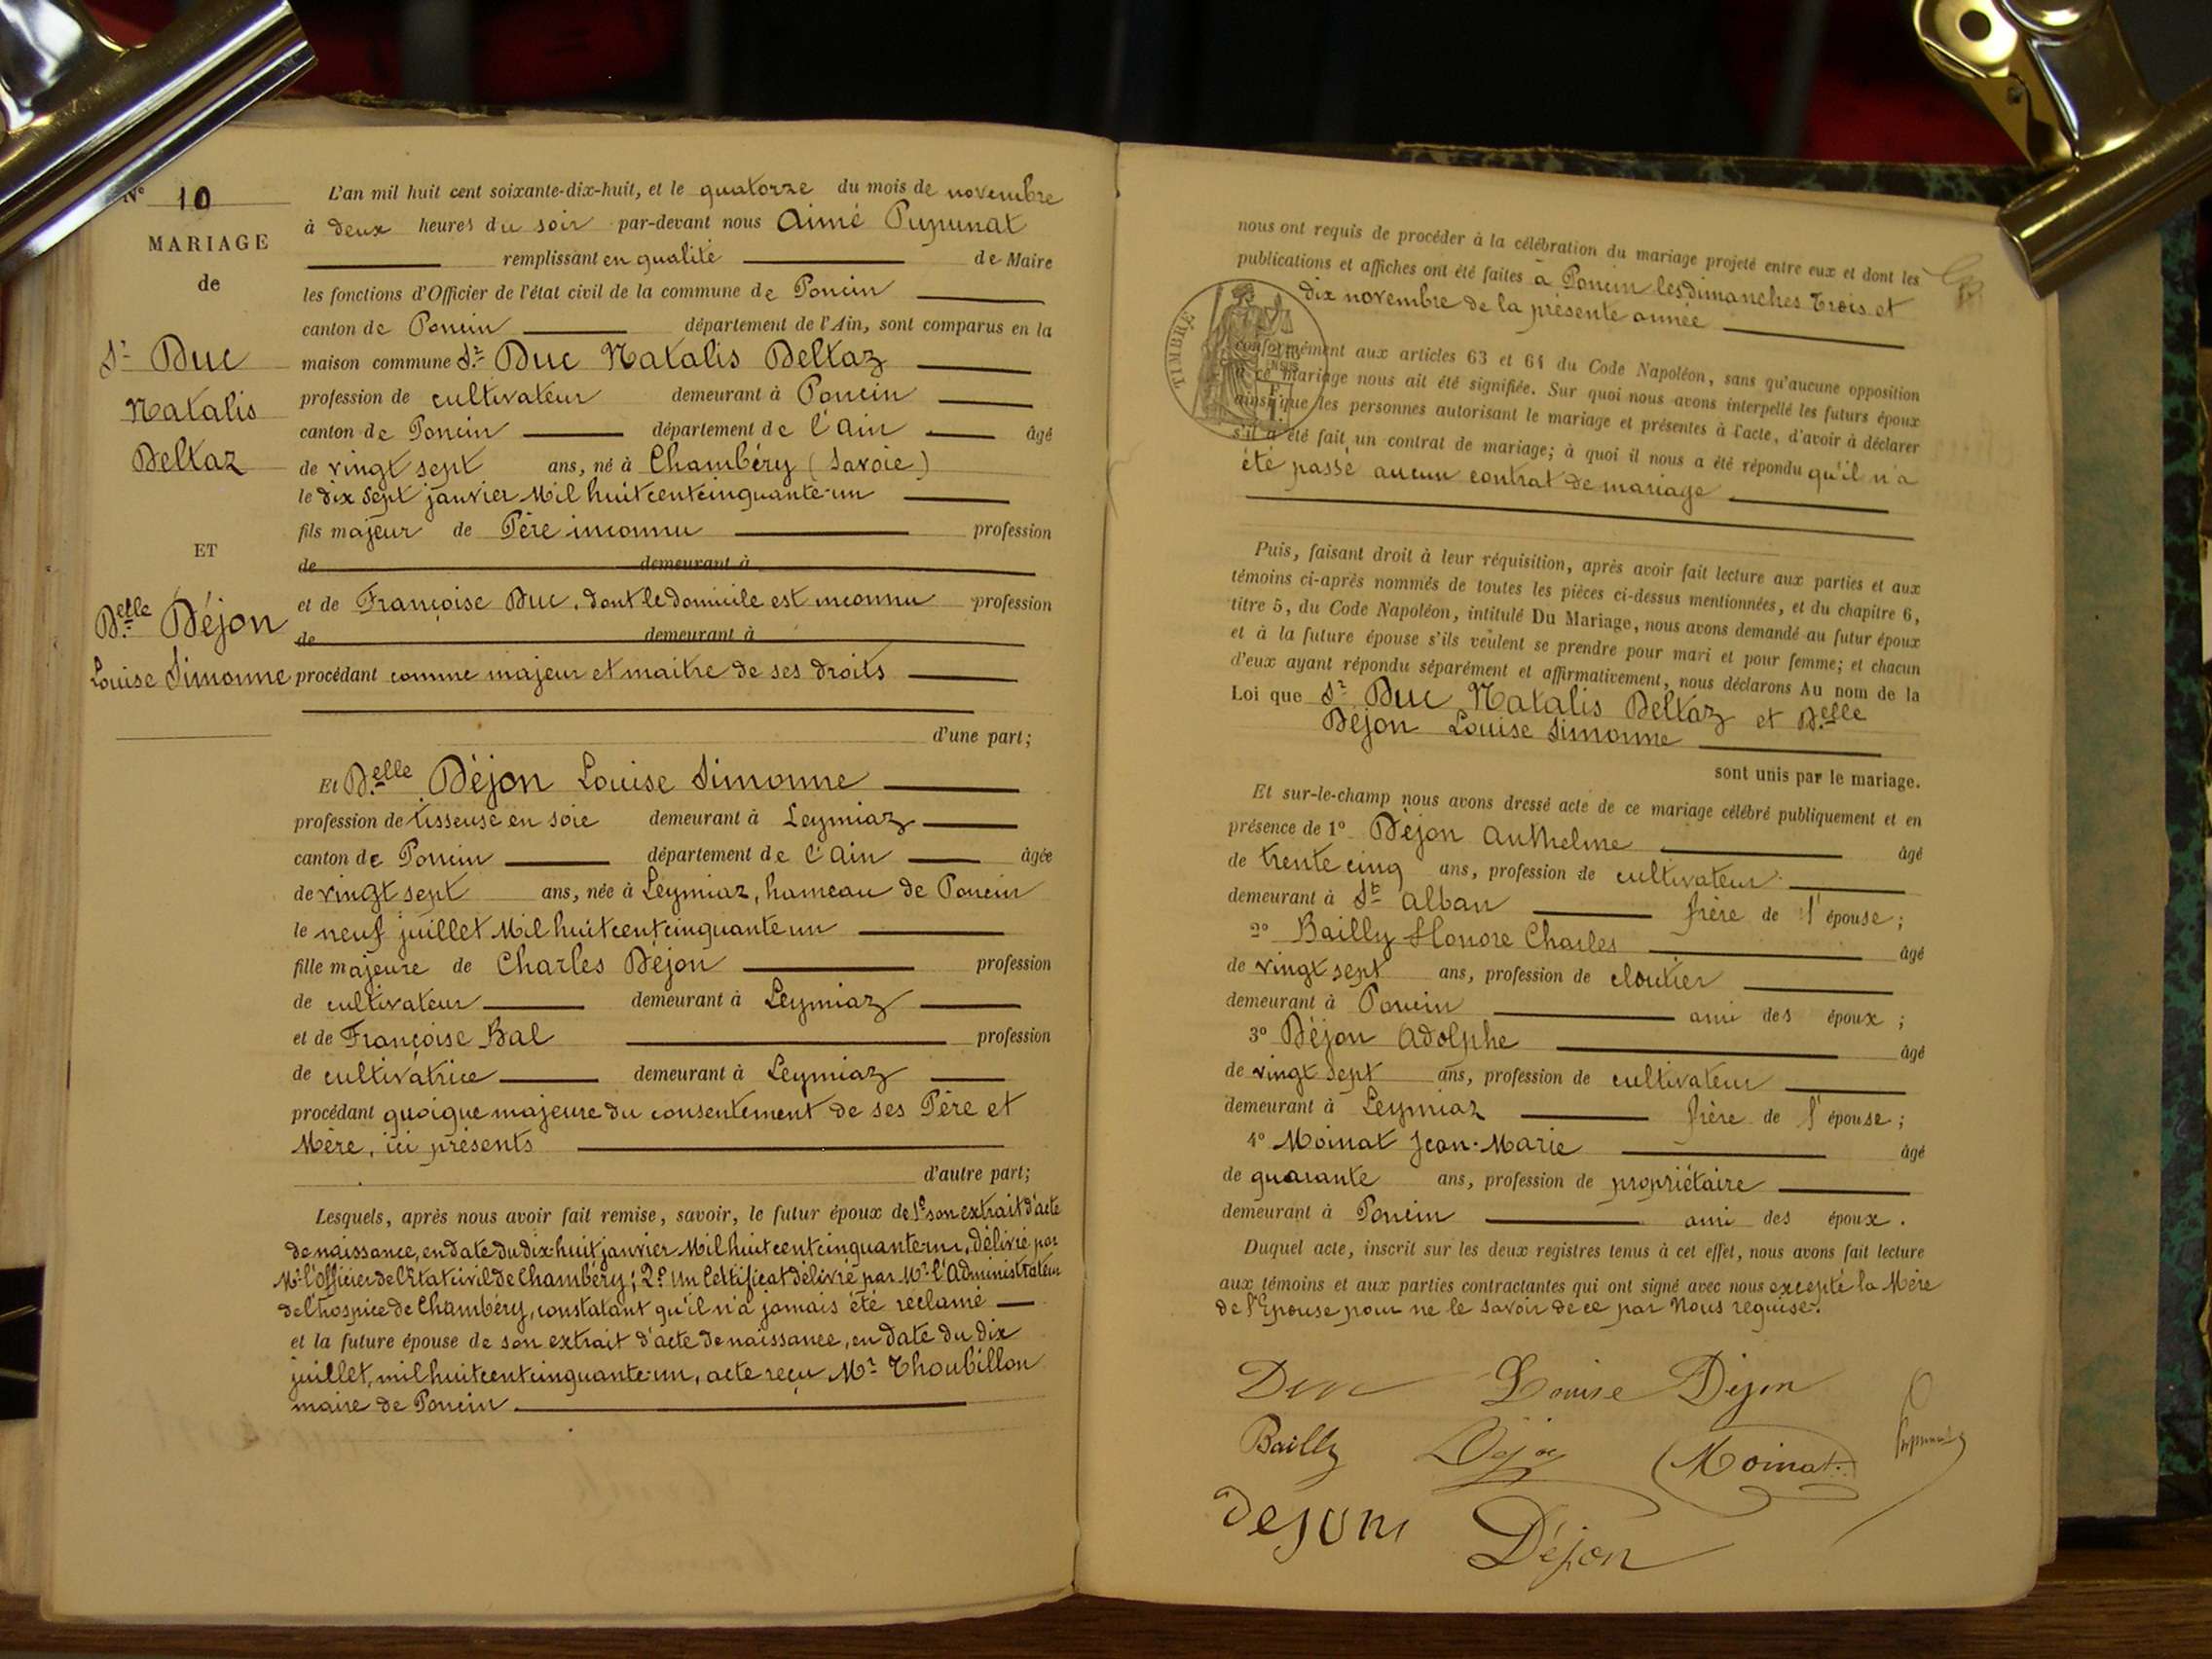 N° 10
MARIAGE
de
Sr Duc
Natalis
Deltaz
ET
Delle Déjon
Louise Simonne
L'an mil huit cent soixante-dix-huit, et le quatorze du mois de novembre
à deux heures du soir par-devant nous Aimé Pupunat
remplissant en qualité de Maire
les fonctions d'Officier de l'état civil de la commune de Poncin
canton de Poncin département de l'Ain, sont comparus en la
maison commune Sr Duc Natalis Deltaz
profession de cultivateur demeurant à Poncin
canton de Poncin département de l'Ain âgé
de vingt sept ans, né à Chambéry (Savoie)
le dix sept janvier Mil huit cent cinquante-un
fils majeur de Père inconnu profession
de demeurant à
et de Françoise Duc, dont le domicile est inconnu profession
de demeurant à
procédant comme majeur et maitre de ses droits
d'une part;
Et Delle Déjon Louise Simonne
profession de tisseuse en soie demeurant à Leymiaz
canton de Poncin département de l'Ain âgée
de vingt sept ans, née à Leymiaz, hameau de Poncin
le neuf juillet Mil huit cent cinquante un
fille majeure de Charles Déjon profession
de cultivateur demeurant à Leymiaz
et de Françoise Bal profession
de cultivatrice demeurant à Leymiaz
procédant quoique majeure du consentement de ses Père et
Mère, ici présents
d'autre part;
Lesquels, après nous avoir fait remise, savoir, le futur époux de 1° son extrait d'acte
de naissance, en date du dix-huit janvier Mil huit cent cinquante-un, délivré par
Mr l'Officier de l'Etat civil de Chambéry; 2° un Certificat délivré par Mr l'Administrateur
de l'hospice de Chambéry, constatant qu'il n'a jamais été réclamé
et la future épouse de son extrait d'acte de naissance, en date du dix
juillet, mil huit cent cinquante-un, acte reçu Mr Thoubillon
maire de Poncin
nous ont requis de procéder à la célébration du mariage projeté entre eux et dont les
publications et affiches ont été faites à Poncin les dimanches Trois et
dix novembre de la présente année
TIMBRE
conformément aux articles 63 et 64 du Code Napoléon, sans qu'aucune opposition
à ce mariage nous ait été signifiée. Sur quoi nous avons interpellé les futurs époux
ainsi que les personnes autorisant le mariage et présentes à l'acte, d'avoir à déclarer
s'il a été fait un contrat de mariage; à quoi il nous a été répondu qu'il n'a
été passé aucun contrat de mariage
Puis, faisant droit à leur réquisition, après avoir fait lecture aux parties et aux
témoins ci-après nommés de toutes les pièces ci-dessus mentionnées, et du chapitre 6,
titre 5, du Code Napoléon, intitulé Du Mariage, nous avons demandé au futur époux
et à la future épouse s'ils veulent se prendre pour mari et pour femme; et chacun
d'eux ayant répondu séparément et affirmativement, nous déclarons Au nom de la
Loi que Sr Duc Natalis Deltaz et Delle
Déjon Louise Simonne
sont unis par le mariage.
Et sur-le-champ nous avons dressé acte de ce mariage célébré publiquement et en
présence de 1° Déjon Anthelme âgé
de trente cinq ans, profession de cultivateur
demeurant à St Alban frère de l'épouse;
2° Bailly Honore Charles âgé
de vingt sept ans, profession de cloutier
demeurant à Poncin ami des époux;
3° Déjon Adolphe âgé
de vingt sept ans, profession de cultivateur
demeurant à Leymiaz frère de l'épouse;
4° Moinat Jean-Marie âgé
de quarante ans, profession de propriétaire
demeurant à Poncin ami des époux.
Duquel acte, inscrit sur les deux registres tenus à cet effet, nous avons fait lecture
aux témoins et aux parties contractantes qui ont signé avec nous excepté la Mère
de l'Epouse pour ne le savoir de ce par Nous requise.
Duc Louise Dejon
Bailly Dejon Moinat
dejon Déjon